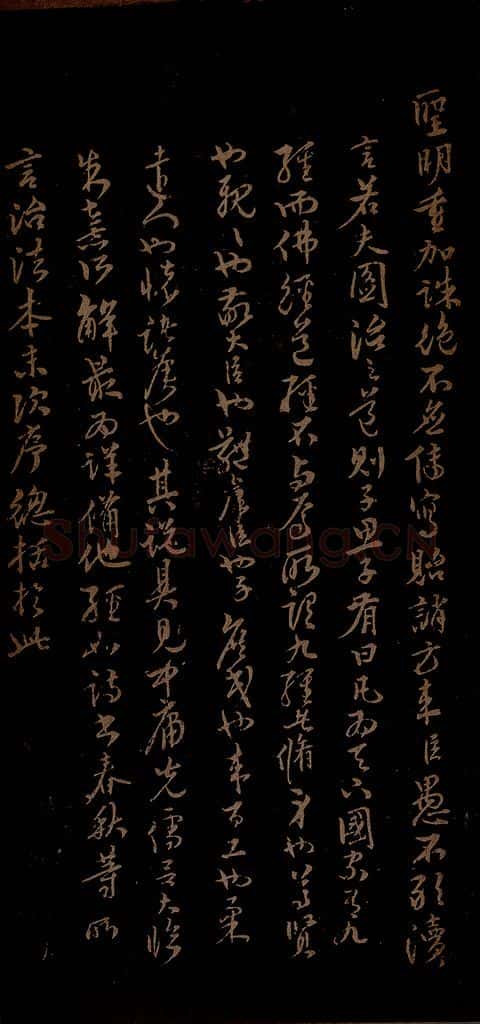 聖明重加誅絕不無傳寫貽誚方來臣愚不敢瀆
言若夫國治之道則子思子有曰凡為天下國家有九
經而佛經道經不與焉所謂九經其脩身也尊賢
也親〻也敬大臣也體羣臣也子庶民也來百工也柔
遠人也懷諸侯也其說具見中庸先儒呂大臨
朱熹所解最為詳備他經如詩書春秋等所
言治法本末次序總括於此
Shufawang.CN